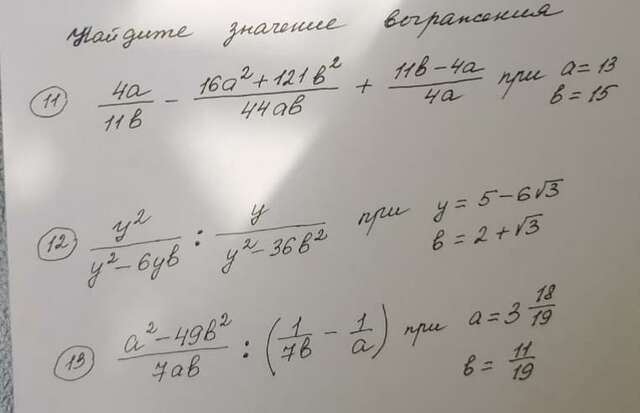 Найдите значение выражения
11 4a/11b - 16a²+121b²/44ab + 11b-4a/4a при a=13
b=15
12 y²/y²-6yb : y/y²-36b² при y=5-6√3
b=2+√3
13 a²-49b²/7ab : (1/7b - 1/a) при a=3 18/19
b=11/19